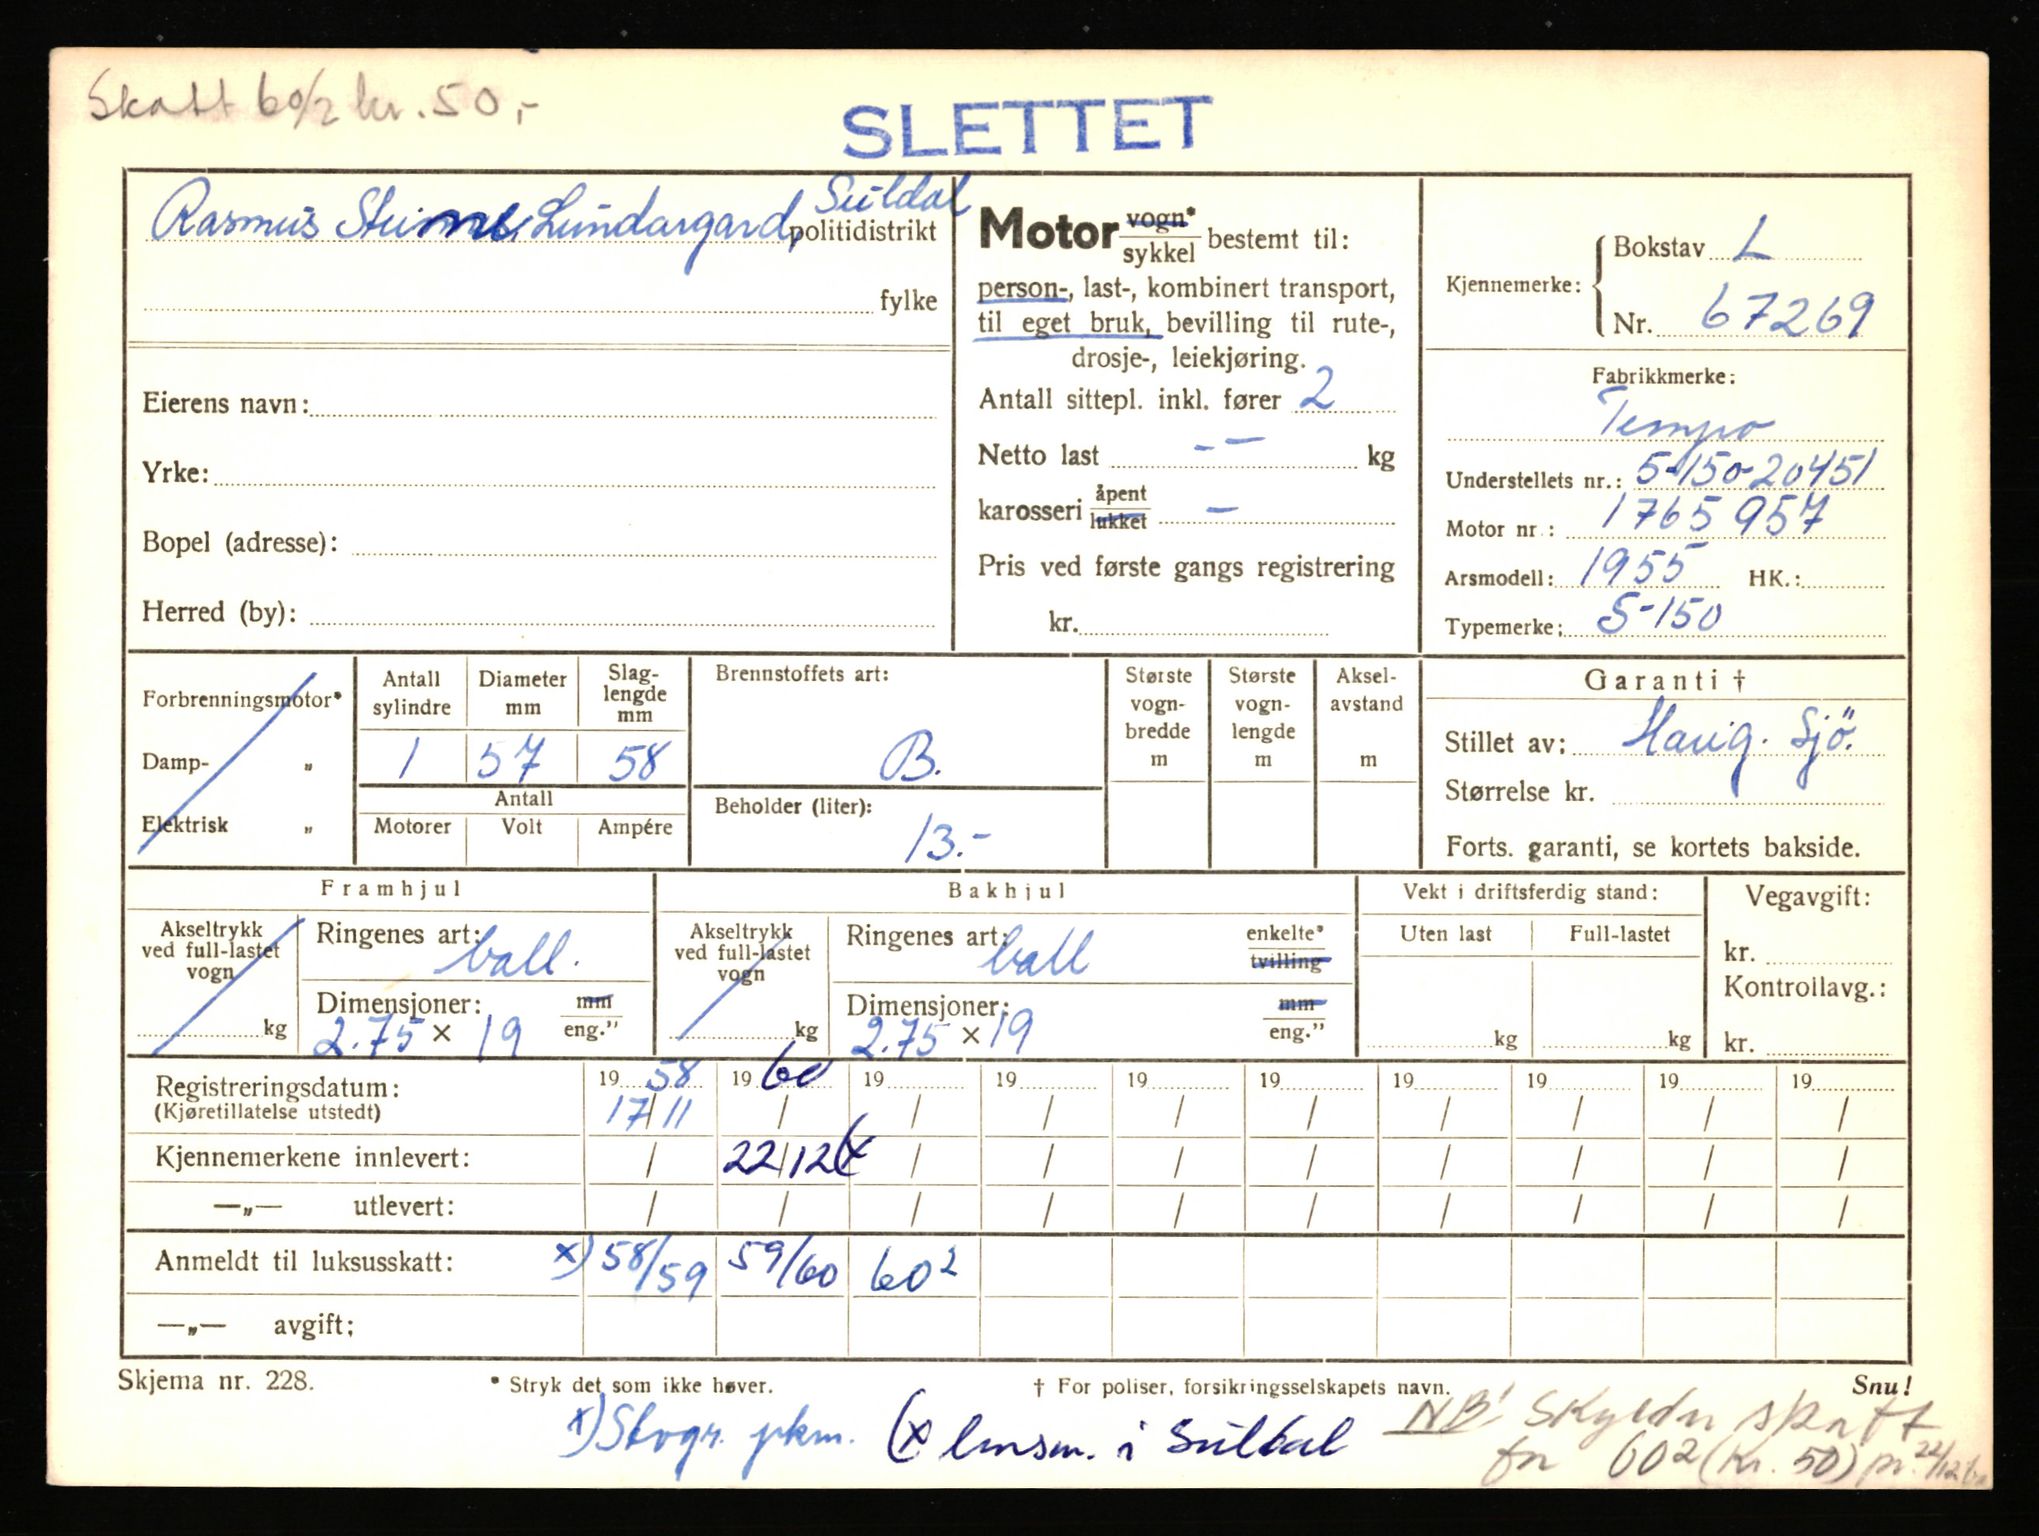 Skatt 60/2 kr. 50,-
SLETTET
Rasmus Lundargard, Suldal politidistrikt
fylke
Eierens navn:
Yrke:
Bopel (adresse):
Herred (by):
Motor vogn* sykkel bestemt til:
person-, last-, kombinert transport,
til eget bruk, bevilling til rute-,
drosje-, leiekjøring.
Antall sittepl. inkl. fører 2
Netto last - - kg
karosseri åpent lukket -
Pris ved første gangs registrering
kr.
Kjennemerke: Bokstav L
Nr. 67269
Fabrikkmerke:
Tempo
Understellets nr.: S-150-20451
Motor nr.: 1765957
Arsmodell: 1955 HK.:
Typemerke: S-150
Forbrenningsmotor*
Damp- „
Elektrisk „
Antall sylindre 1
Diameter mm 57
Slag-lengde mm 58
Antall
Motorer Volt Ampére
Brennstoffets art:
B.
Beholder (liter):
13.-
Største vogn-bredde m
Største vogn-lengde m
Aksel-avstand m
Garanti †
Stillet av: Haug. Sjö.
Størrelse kr.
Forts. garanti, se kortets bakside.
Framhjul
Akseltrykk ved full-lastet vogn kg
Ringenes art: ball.
Dimensjoner: mm eng."
2.75 × 19
Bakhjul
Akseltrykk ved full-lastet vogn kg
Ringenes art: ball enkelte* tvilling
Dimensjoner: mm eng."
2.75 × 19
Vekt i driftsferdig stand:
Uten last Full-lastet
kg kg
Vegavgift:
kr.
Kontrollavg.:
kr.
Registreringsdatum: 19 58 19 60 19 19 19 19 19 19 19 19
(Kjøretillatelse utstedt) 17/11 / / / / / / / / /
Kjennemerkene innlevert: / 22/12 (x / / / / / / / /
—„— utlevert: / / / / / / / / / /
Anmeldt til luksusskatt: x) 58/59 59/60 60²
—„— avgift;
Skjema nr. 228. * Stryk det som ikke høver. † For poliser, forsikringsselskapets navn. Snu!
x) Stvgr. pkm. (x lmsm. i Suldal
NB! Skylder skatt
for 60² (kr. 50) pr. 22/12 60